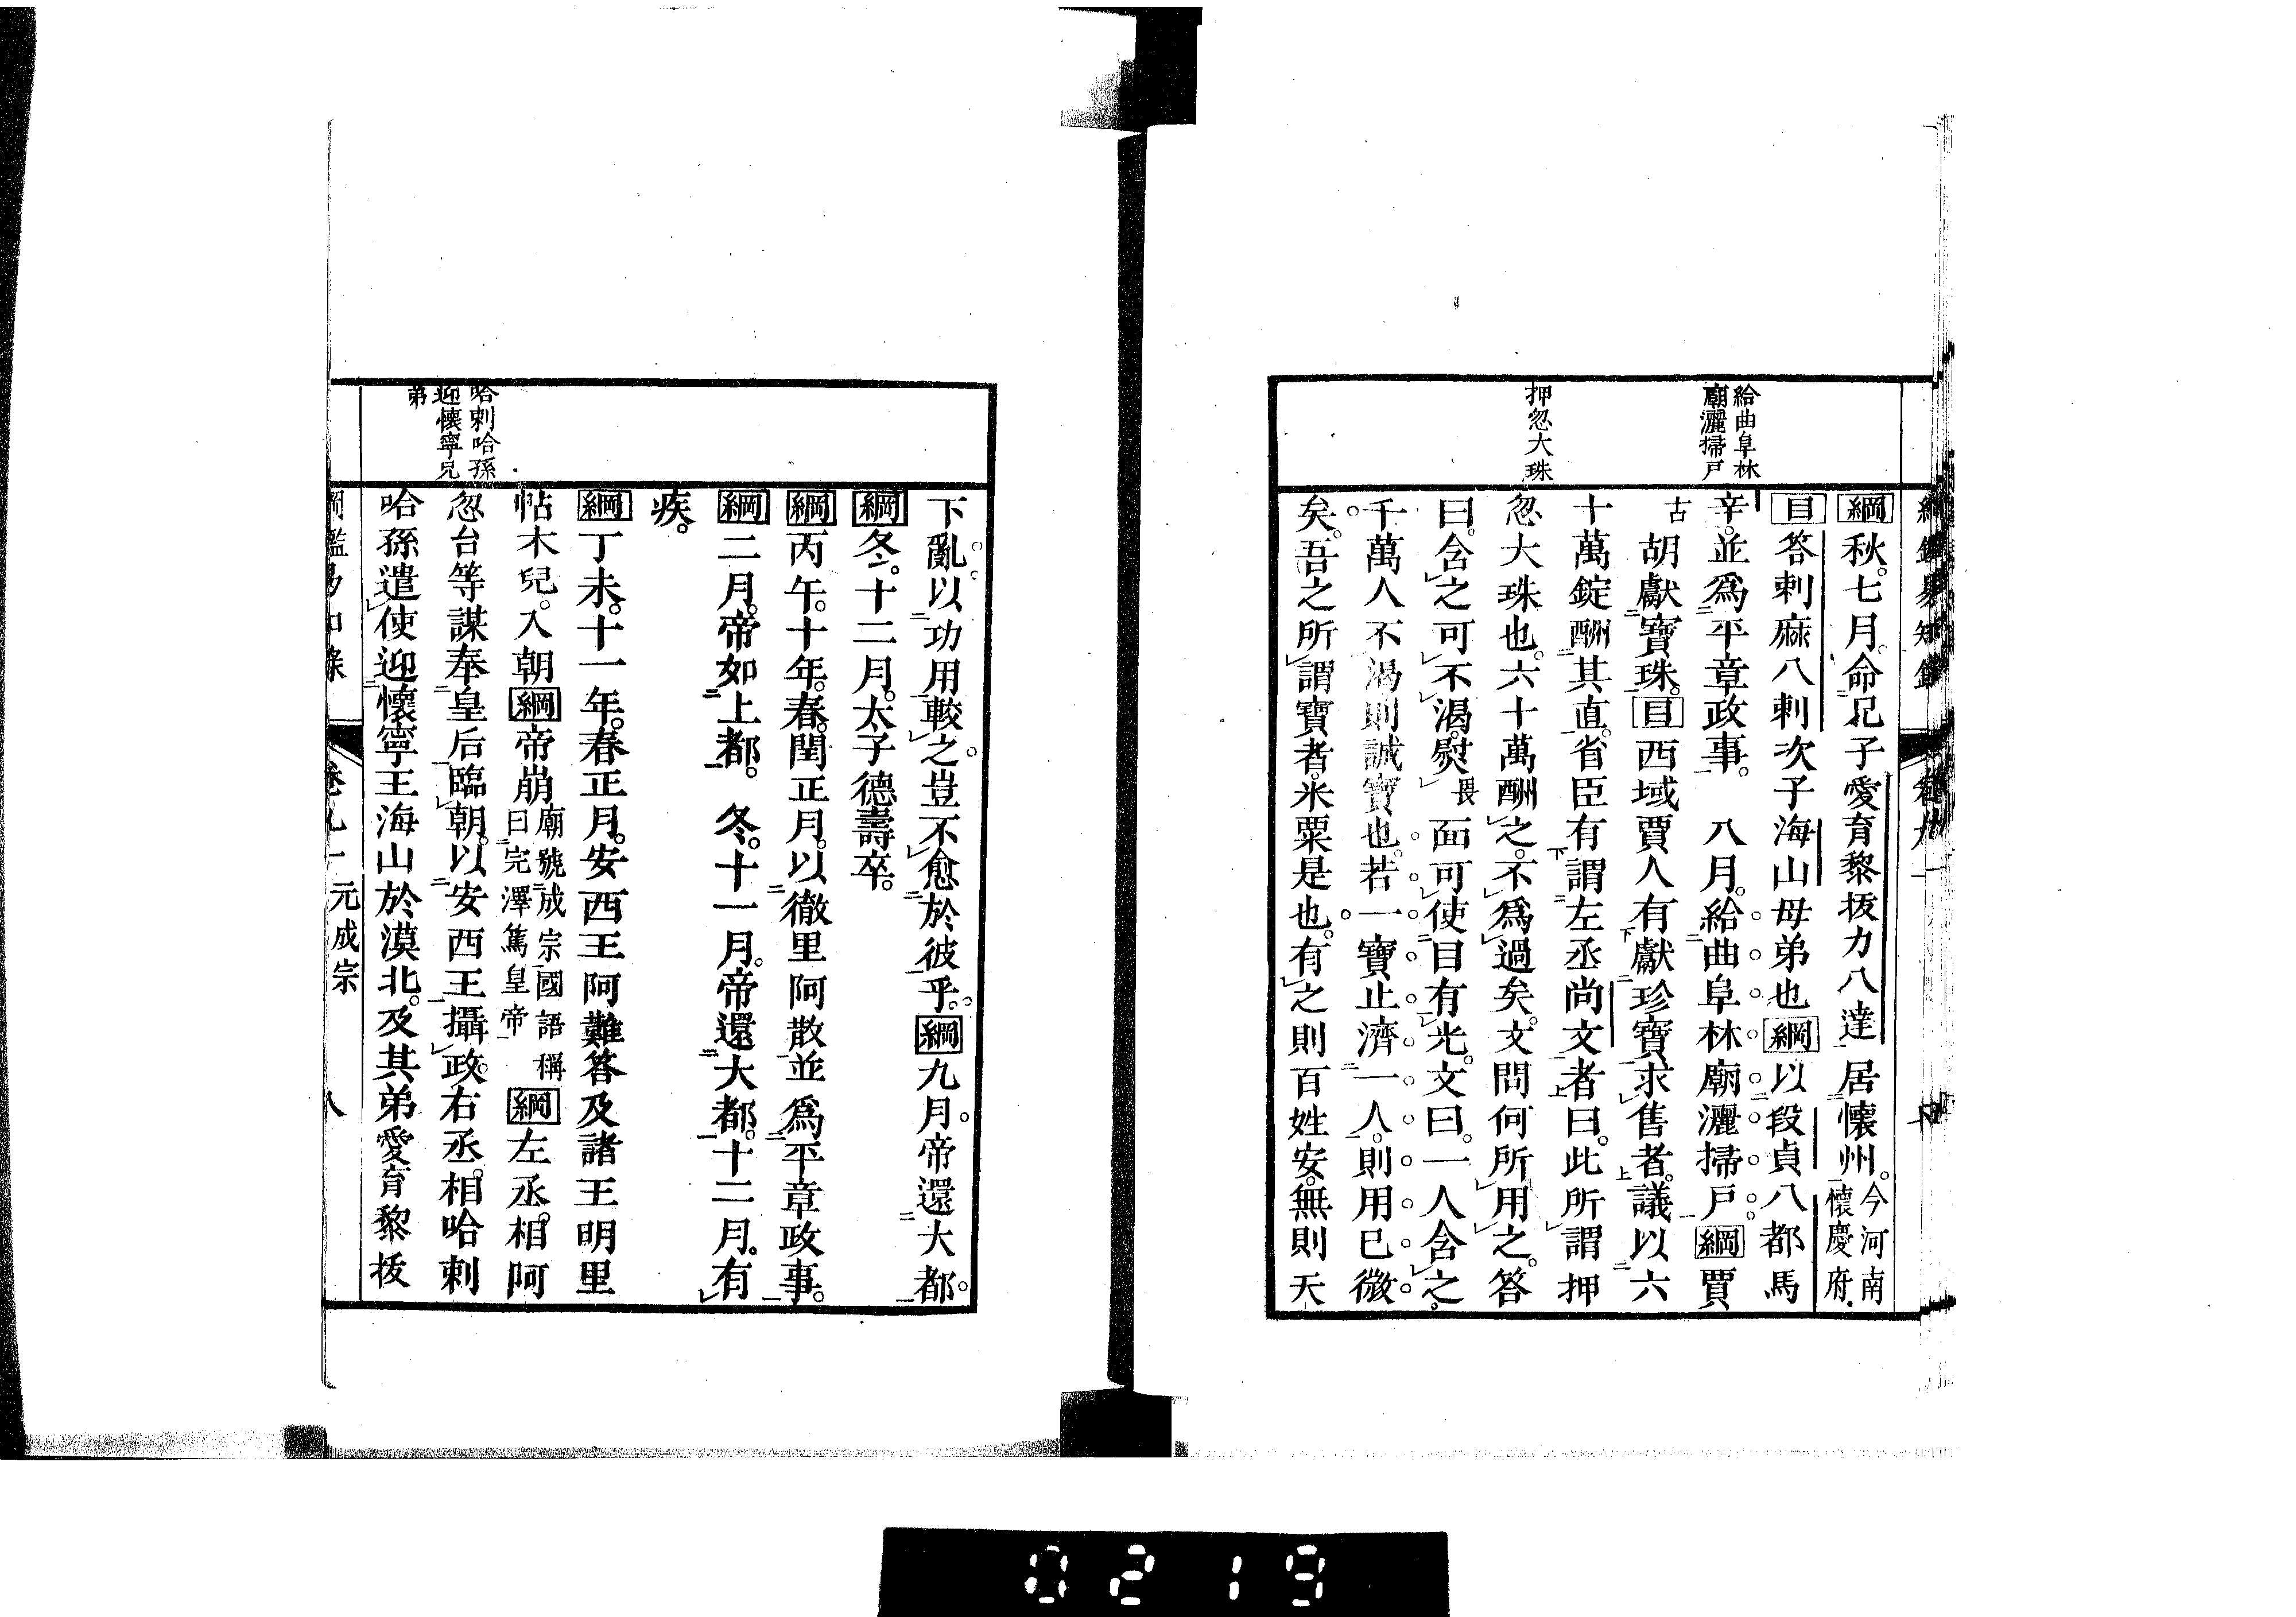 給曲阜林
廟灑掃戸
押忽大珠
綱秋。七月。命兄子愛育黎拔力八達居懷州。今河南懷慶府。
目答剌麻八剌次子海山母弟也綱以段貞八都馬
辛。並爲平章政事。八月。給曲阜林廟灑掃戸。綱賈
古胡獻寶珠。目西域賈人有獻珍寶求售者。議以六
十萬錠酬其直。省臣有謂左丞尚文者曰。此所謂押
忽大珠也。六十萬酬之。不爲過矣。文問何所用之。答
曰。含之可不渴。熨畏面可使目有光。文曰。一人含之。
千萬人不渴則誠寶也。若一寶止濟一人。則用已微
矣。吾之所謂寶者。米粟是也。有之則百姓安。無則天
哈剌哈孫
迎懷寧兄
弟
下亂。以功用較之豈不愈於彼乎。綱九月。帝還大都。
綱冬。十二月。太子德壽卒。
綱丙午。十年。春。閏正月。以徹里阿散並爲平章政事。
綱二月。帝如上都。冬。十一月。帝還大都。十二月。有
疾。
綱丁未。十一年。春正月。安西王阿難答及諸王明里
帖木兒。入朝綱帝崩廟號成宗國語稱曰完澤篤皇帝綱左丞。相阿
忽台等謀奉皇后臨朝。以安西王攝政。右丞。相哈剌
哈孫遣使迎懷寧王海山於漠北。及其弟愛育黎拔
元成宗
八
0219